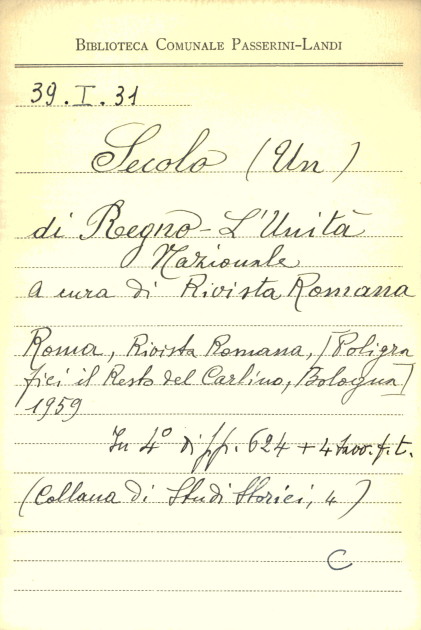 BIBLIOTECA COMUNALE PASSERINI-LANDI
39.I.31
Secolo (Un)
di Regno - L'Unità
Nazionale
A cura di Rivista Romana
Roma, Rivista Romana, [Poligra
fici il Resto del Carlino, Bologna]
1959
In 4° di pp. 624 + 4 tav. f. t.
(Collana di Studi Storici, 4)
C